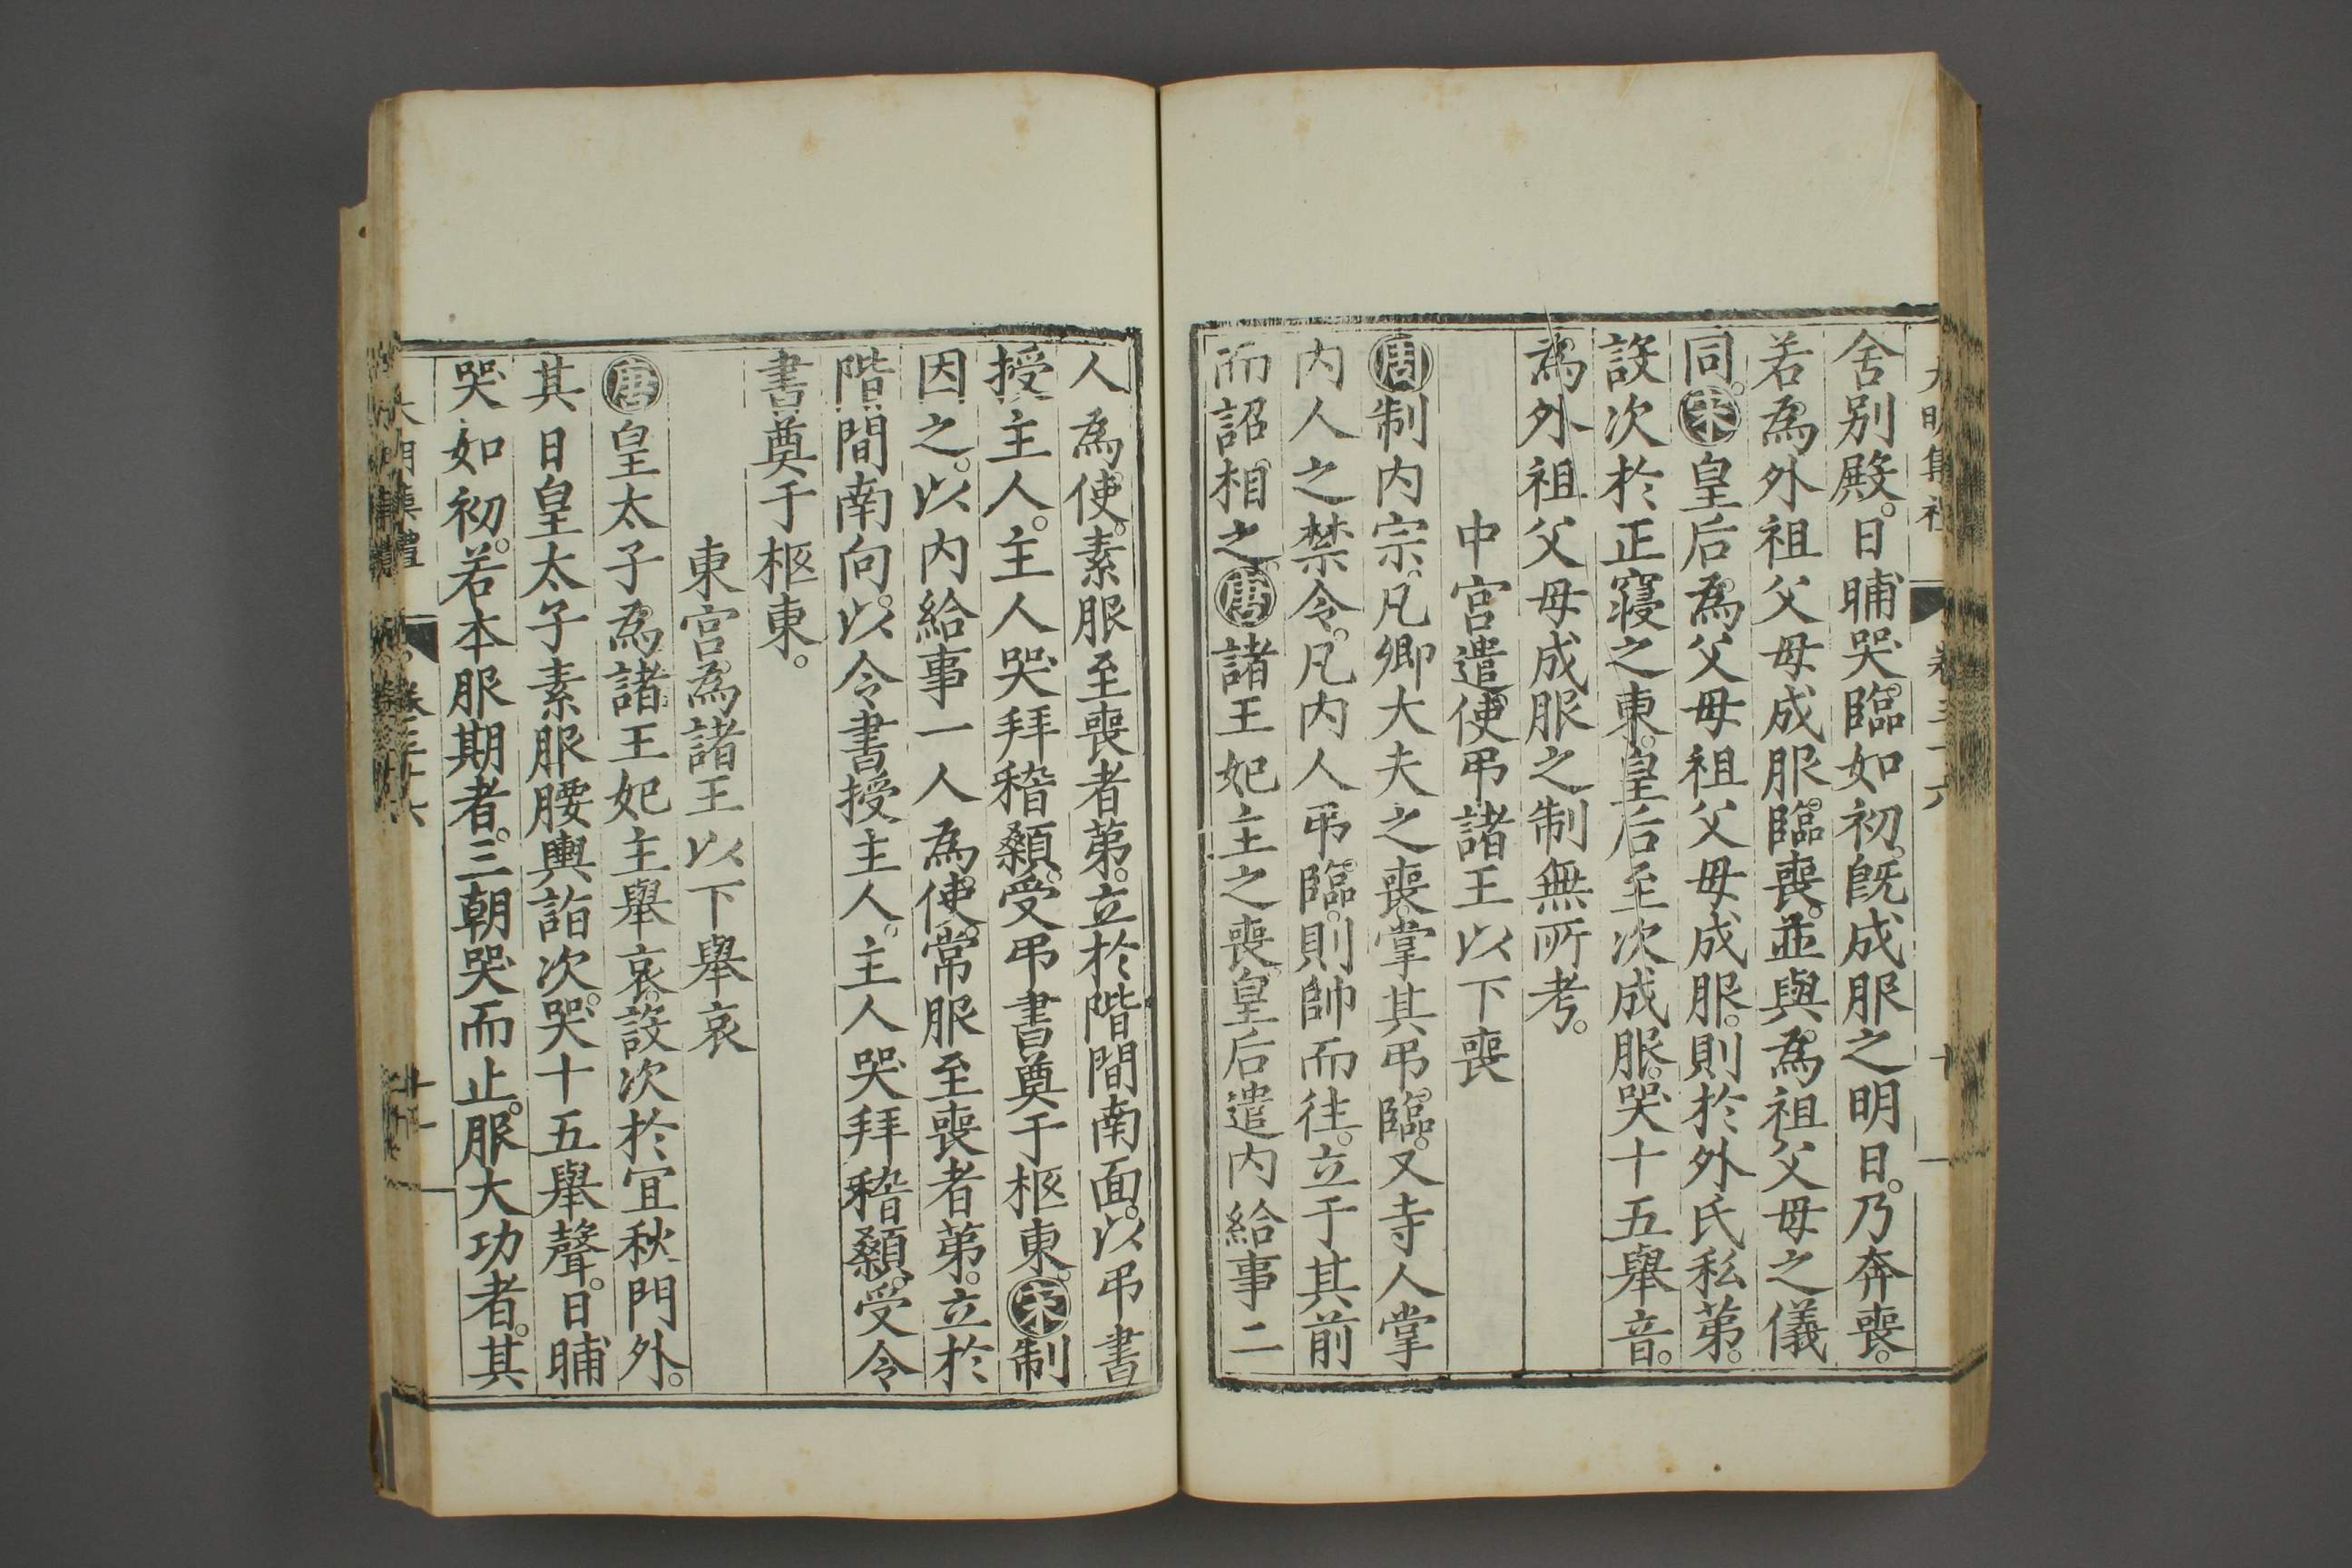 舍别殿。日晡哭。臨如初。旣成服之明日。乃奔喪。
若爲外祖父母成服。臨喪。並與爲祖父母之儀
同。宋皇后爲父母祖父母成服。則於外氏私第。
設次於正寢之東。皇后至次成服。哭十五舉音。
爲外祖父母成服之制無所考。
中宮遣使弔諸王以下喪
周制内宗。凡卿大夫之喪。掌其弔。臨。又寺人掌
内人之禁令。凡内人弔。臨。則帥而往。立于其前
而詔相之。唐諸王妃主之喪。皇后遣内給事二
人爲使。素服至喪者第。立於階間南面。以弔書
授主人。主人哭拜稽顙。受弔書奠于柩東。宋制
因之。以内給事一人爲使。常服至喪者第。立於
階間南向。以令書授主人。主人哭拜稽顙。受令
書奠于柩東。
東宮爲諸王以下舉哀
唐皇太子爲諸王妃主舉哀。設次於宜秋門外。
其日皇太子素服腰輿詣次。哭十五舉聲。日晡
哭如初。若本服期者。三朝哭而止。服大功者。其
大明集禮 卷三十六 十一